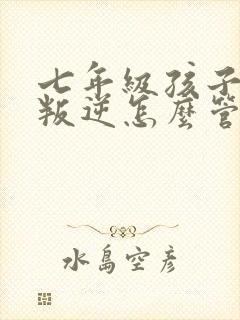 七年級孩子
叛逆怎麼管
水島空彥